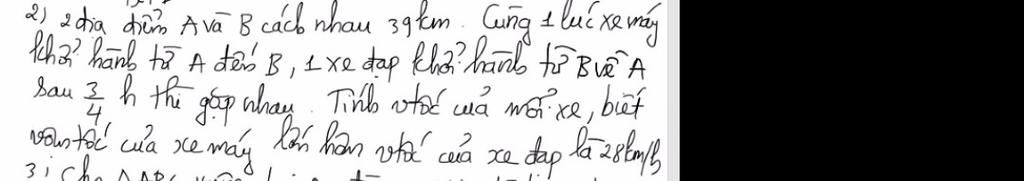 2) 2 địa điểm A và B cách nhau 39 km. Cùng 1 lúc xe máy
khởi hành từ A đến B, 1 xe đạp khởi hành từ B về A
sau 3/4 h thì gặp nhau. Tính vtốc của mỗi xe, biết
vận tốc của xe máy lớn hơn vtốc của xe đạp là 28km/h
3; Cho